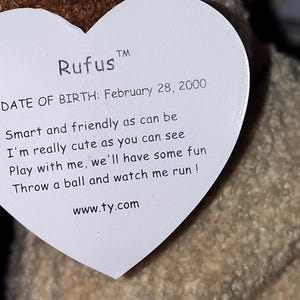 Rufus™
DATE OF BIRTH: February 28, 2000
Smart and friendly as can be
I'm really cute as you can see
Play with me, we'll have some fun
Throw a ball and watch me run !
www.ty.com